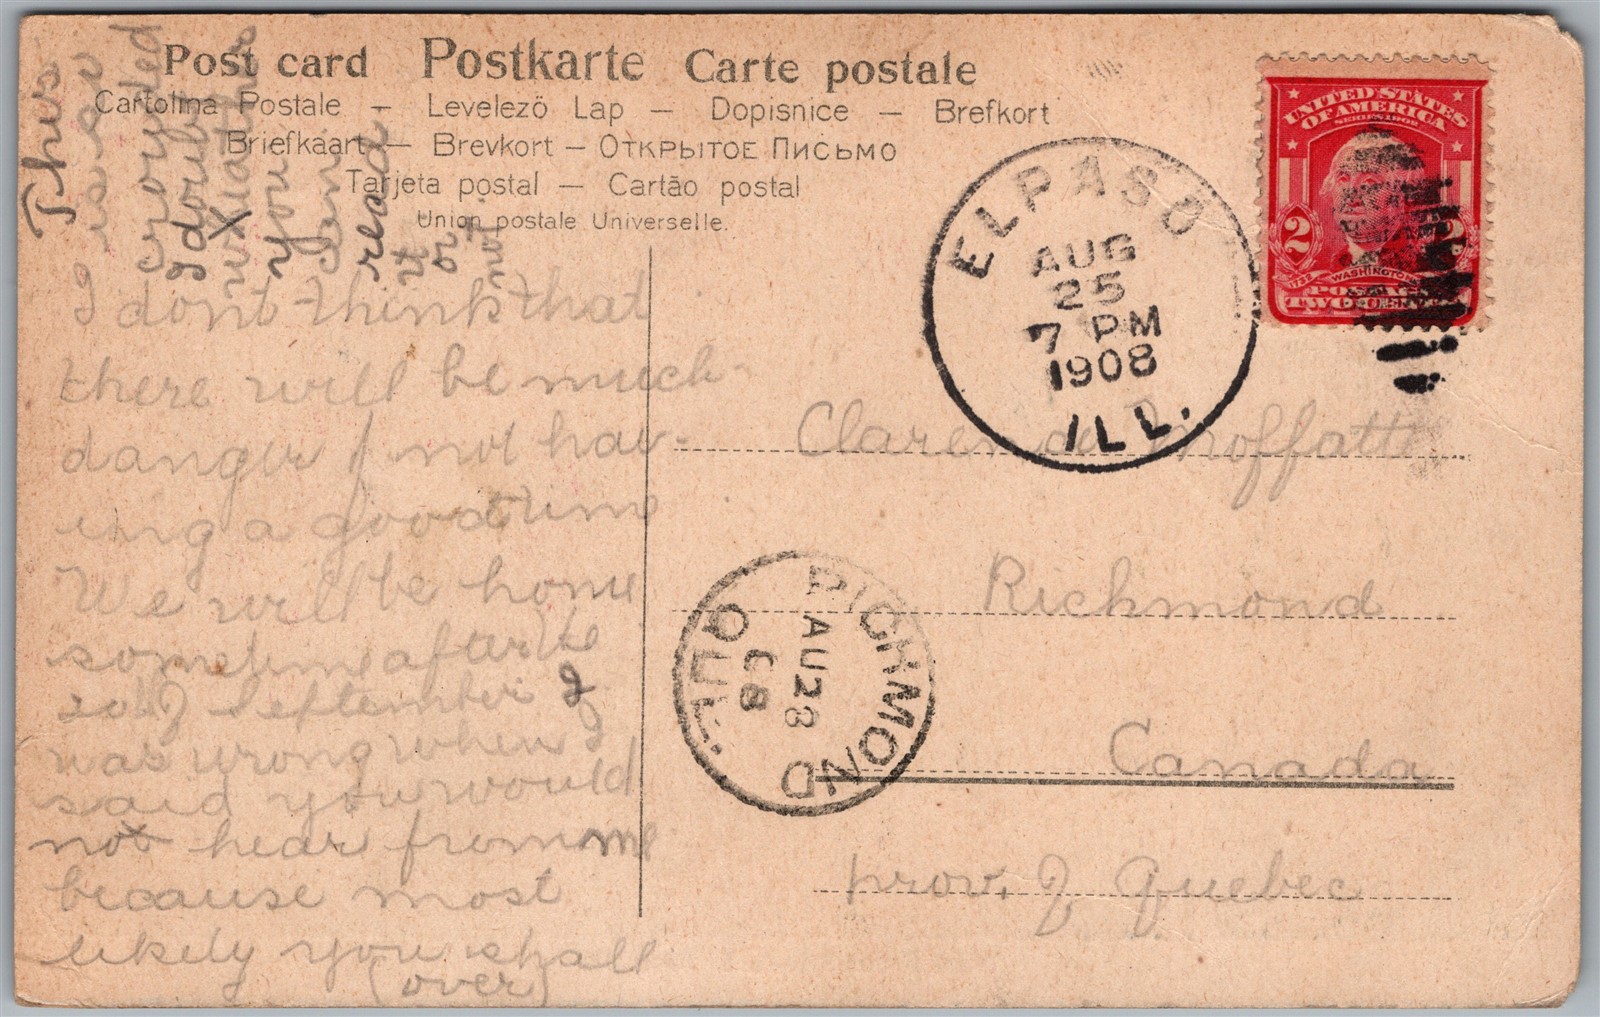 Post card Postkarte Carte postale
Cartolina Postale – Levelezö Lap – Dopisnice – Brefkort
Briefkaart – Brevkort – Открытое Письмо
Tarjeta postal – Cartão postal
Union postale Universelle.
UNITED STATES
OF AMERICA
SERIES 1902
2 2
1732 WASHINGTON
POSTAGE
TWO CENTS
ELPASO
AUG
25
7 PM
1908
ILL.
This
is so
crowded
I doubt
whether
you
can
read
it
or
not
I dont think that
there will be much
danger of not hav-
ing a good time
We will be home
sometime after the
20 of September I
was wrong when I
said you would
not hear from me
because most
likely you shall
(over)
Clarence Moffatt
Richmond
Canada
prov. of Quebec
RICHMOND
AU 28
08
QUE.